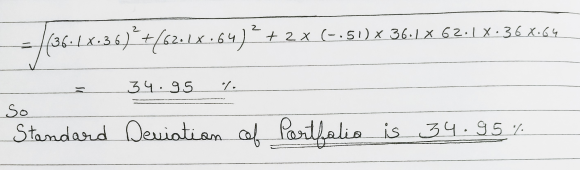 = √(36.1 x .36)² + (62.1 x .64)² + 2 x (-.51) x 36.1 x 62.1 x .36 x .64
= 34.95 %
So
Standard Deviation of Portfolio is 34.95 %